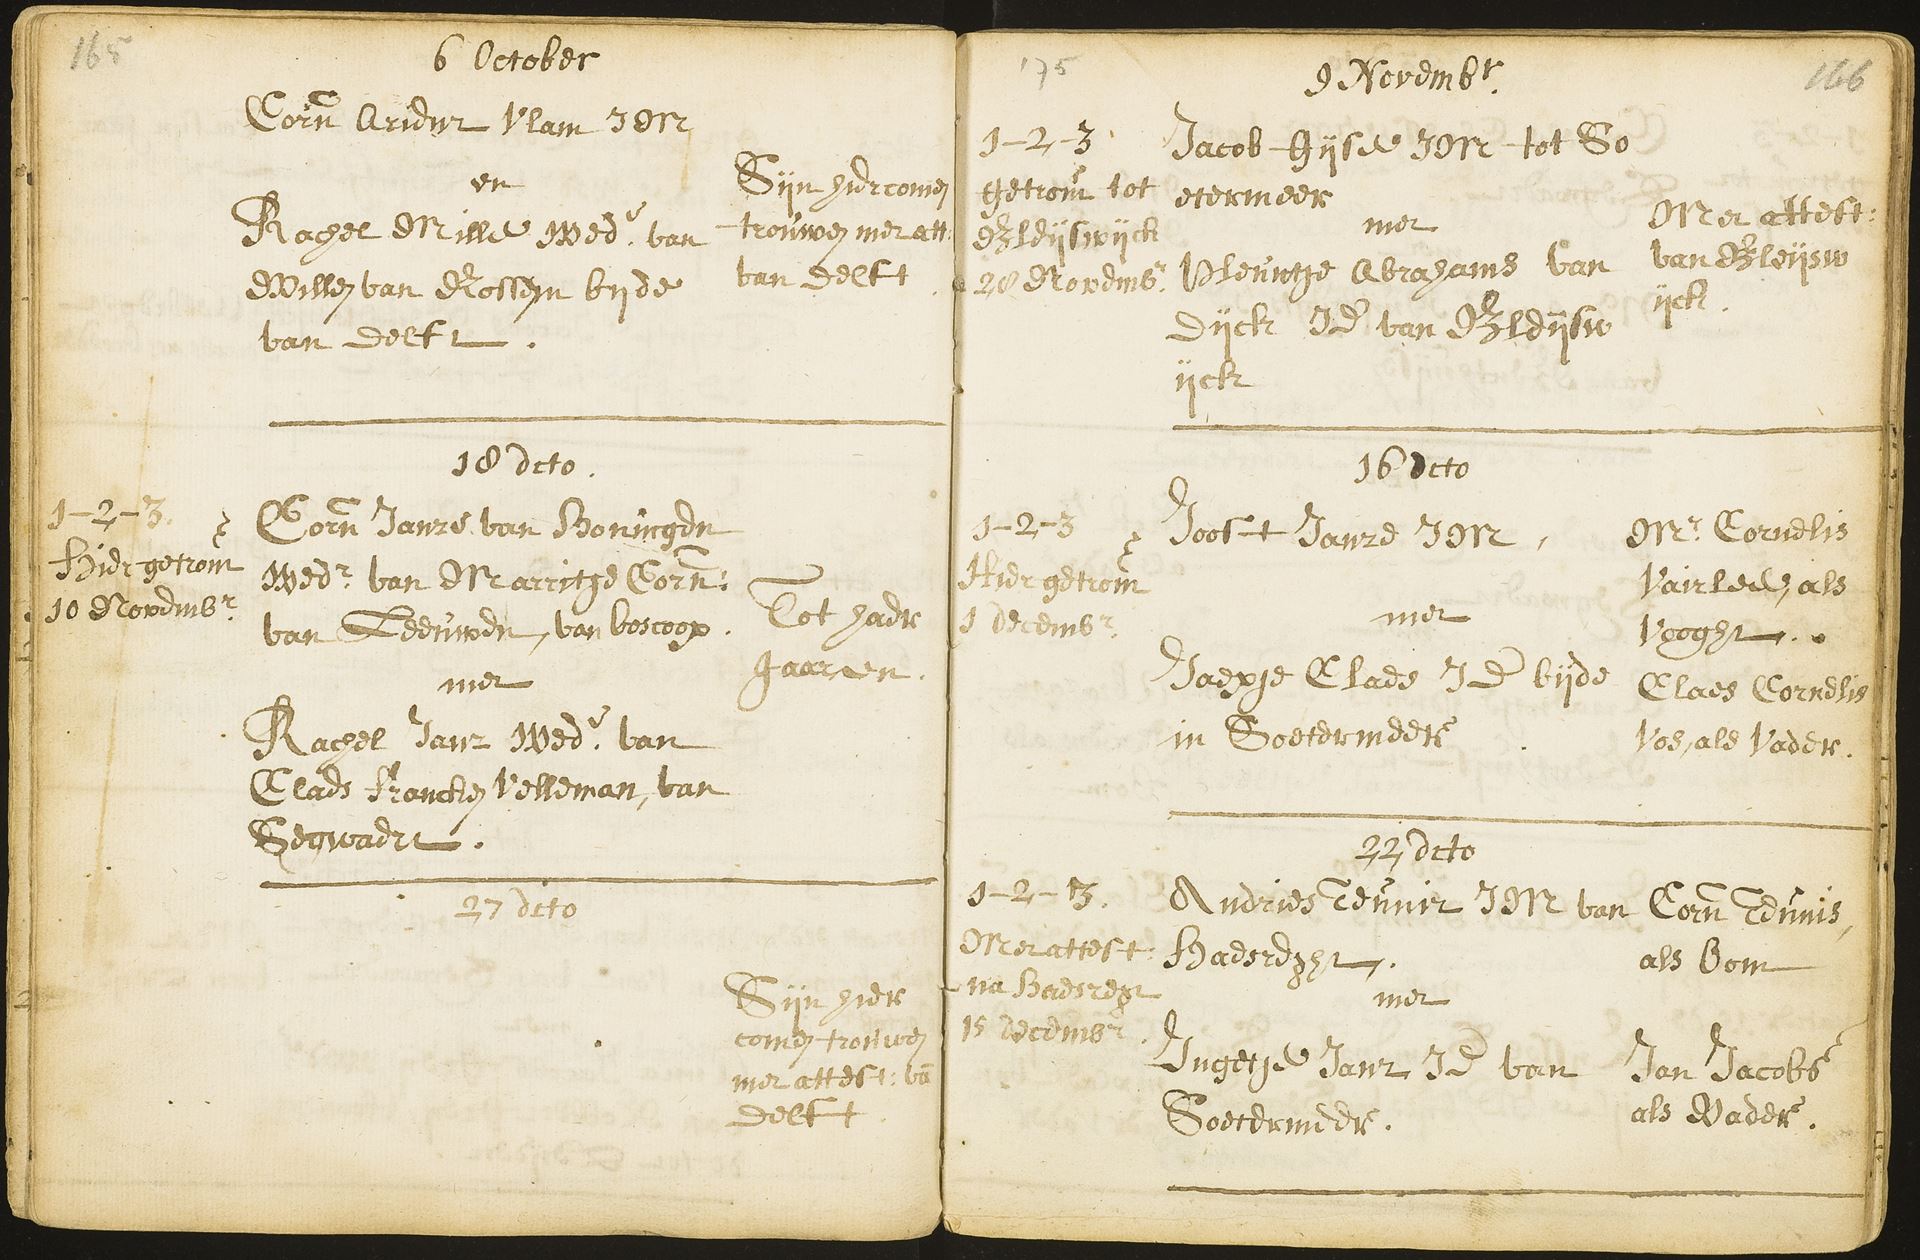 165
6 October
Corn Ariensz Vlam JM
en
Rachel Mille Wede. van
Willem van Rossem bijde
van Delft.
Sijn hier comen
trouwen met att:
van Delft.
18 dcto.
1-2-3.
Hier getrout
10 Novembr.
Corn Janze van Coningen
Wedr. van Marritje Corn:
van Leeuwen, van boscoop.
met
Rachel Jans Wede. van
Claes Francken Velleman, van
Segwaert.
Tot haer
gaaren.
27 dcto
Sijn hier
comen trouwen
met attest: van
Delft
175
166
9 Novembr.
1-2-3
getrout tot
Bleijswijck
28 Novembr.
Jacob Gijse JM tot So
etermeer
met
Pleuntje Abrahams van
Dijck JD van Bleijsw
ijck
Met attest:
van Bleijsw
ijck.
16 dcto
1-2-3
Hier getrout
1 decembr.
Joost Janze JM,
met
Jaepje Claes JD bijde
in Soetermeer
Mr. Cornelis
Vairle, als
Vooght.
Claes Cornelis
Vos, als Vader.
22 dcto
1-2-3.
Met attest:
na Haesrecht
15 decembr.
Andries Teunisz JM van
Haesrecht,.
met
Ingetje Jans JD van
Soetermeer.
Corn Teunis,
als Oom
Jan Jacobs
als Vader.